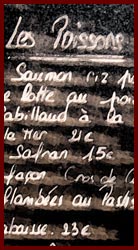 Les Poissons
Saumon riz
de Lotte au
abillaud à la
la Mer 21€
Safran 15€
Japon (Gros de
flambées au Pastis
abaisse. 23€